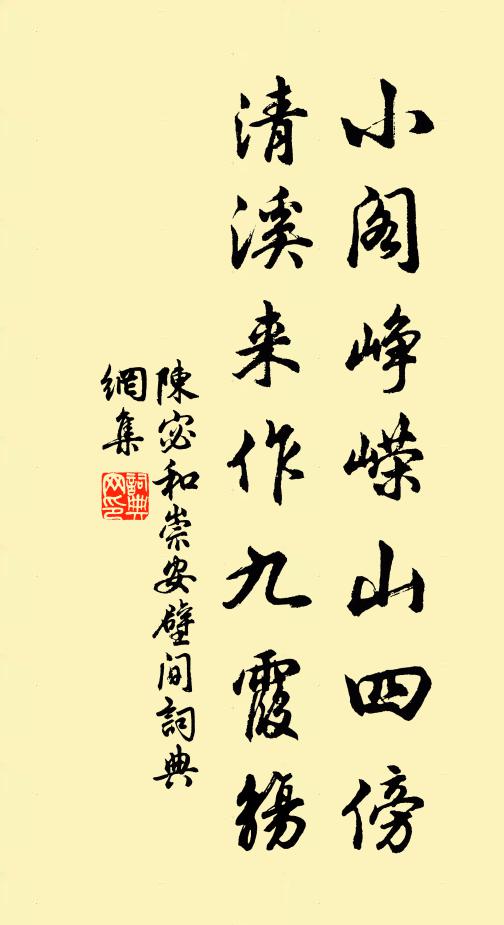 小阁峥嵘山四傍
清溪来作九霞觞
陳宓和崇安壁间詞典
網集
詞典
网印